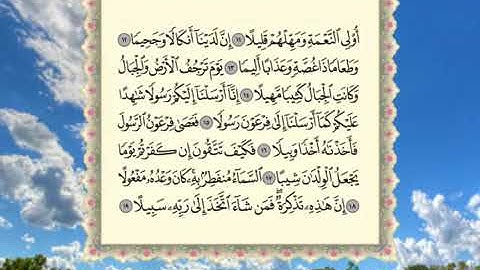 أُوْلِي ٱلنَّعۡمَةِ وَمَهِّلۡهُمۡ قَلِيلًا ١١ إِنَّ لَدَيۡنَآ أَنكَالٗا وَجَحِيمٗا ١٢
وَطَعَامٗا ذَا غُصَّةٖ وَعَذَابًا أَلِيمٗا ١٣ يَوۡمَ تَرۡجُفُ ٱلۡأَرۡضُ وَٱلۡجِبَالُ
وَكَانَتِ ٱلۡجِبَالُ كَثِيبٗا مَّهِيلًا ١٤ إِنَّآ أَرۡسَلۡنَآ إِلَيۡكُمۡ رَسُولٗا شَٰهِدًا
عَلَيۡكُمۡ كَمَآ أَرۡسَلۡنَآ إِلَىٰ فِرۡعَوۡنَ رَسُولٗا ١٥ فَعَصَىٰ فِرۡعَوۡنُ ٱلرَّسُولَ
فَأَخَذۡنَٰهُ أَخۡذٗا وَبِيلٗا ١٦ فَكَيۡفَ تَتَّقُونَ إِن كَفَرۡتُمۡ يَوۡمٗا
يَجۡعَلُ ٱلۡوِلۡدَٰنَ شِيبًا ١٧ ٱلسَّمَآءُ مُنفَطِرُۢ بِهِۦۚ كَانَ وَعۡدُهُۥ مَفۡعُولًا
١٨ إِنَّ هَٰذِهِۦ تَذۡكِرَةٞۖ فَمَن شَآءَ ٱتَّخَذَ إِلَىٰ رَبِّهِۦ سَبِيلًا ١٩